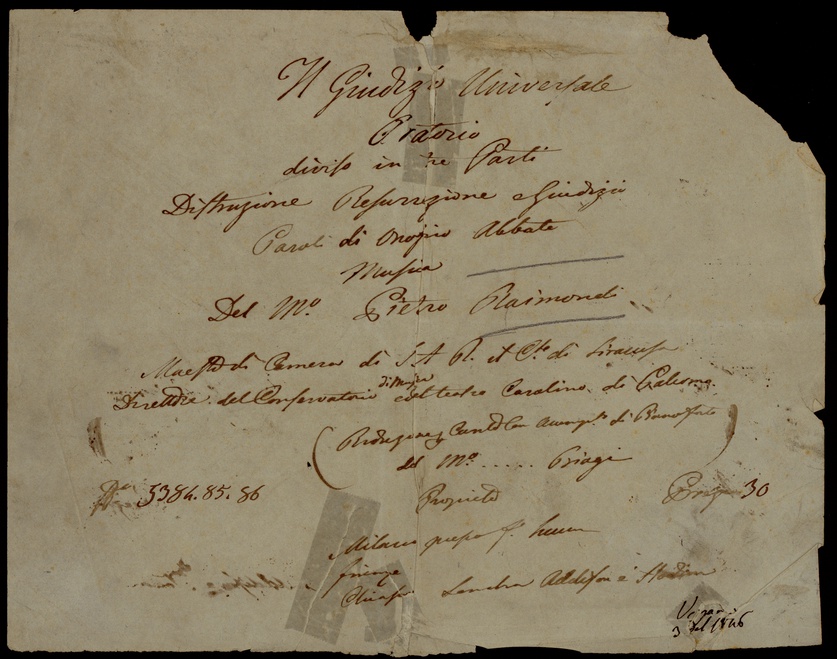 Il Giudizio Universale
Oratorio
diviso in tre Parti
Distruzione Resurrezione e Giudizio
Parole di Onofrio Abbate
Musica
Del Mº Pietro Raimondi
Maestro di Camera di S.A.R. il Cte. di Siracusa
Direttore del Conservatorio di Musica e del teatro Carolino di Palermo
(Riduzione per Canto con accompto. di Pianoforte
del Mº ...... Biagi)
5384.85.86 Proprietà 30
Milano presso
Firenze
Chiasso Londra Addison e Hodson
3 1846